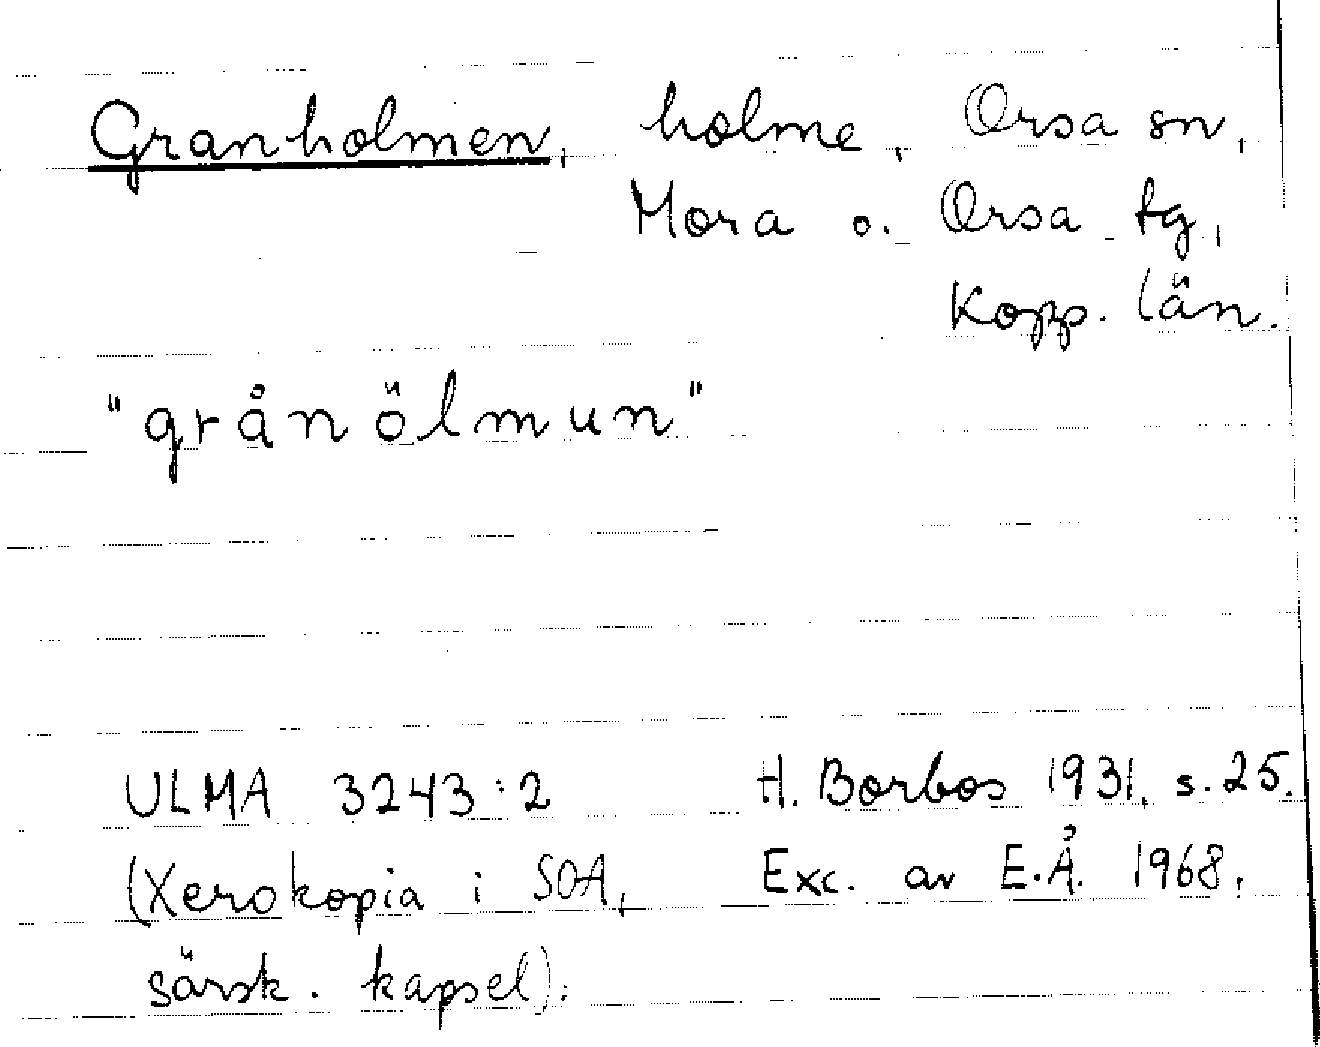 Granholmen, holme, Orsa sn,
Mora o. Orsa tg,
Kopp. län.
"grånölmun"
ULMA 3243:2 H. Borbos 1931, s. 25.
(Xerokopia i SOA, Exc. av E.Å. 1968.
särsk. kapsel).